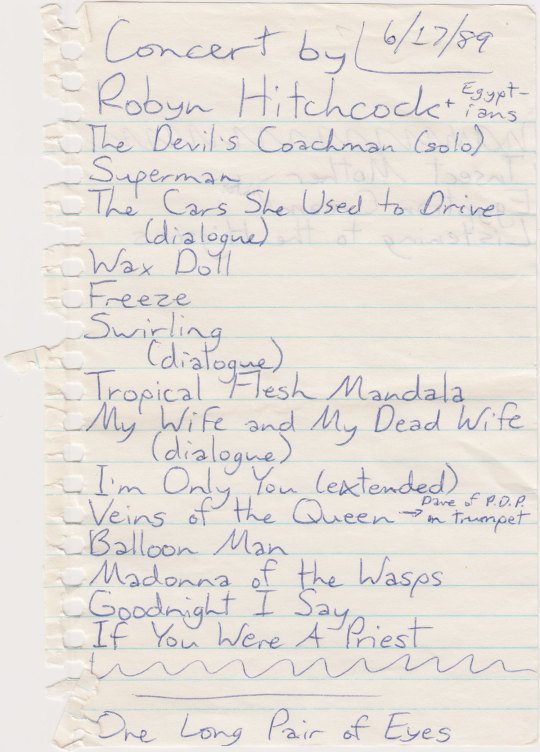 Concert by 6/17/89
Robyn Hitchcock + Egypt-
ians
The Devil's Coachman (solo)
Superman
The Cars She Used to Drive
(dialogue)
Wax Doll
Freeze
Swirling
(dialogue)
Tropical Flesh Mandala
My Wife and My Dead Wife
(dialogue)
I'm Only You (extended)
Veins of the Queen → Dave of P.O.P.
on trumpet
Balloon Man
Madonna of the Wasps
Goodnight I Say
If You Were A Priest
One Long Pair of Eyes